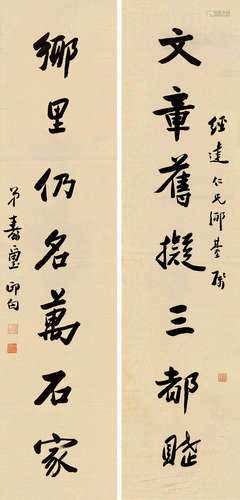 經達仁兄鄉
文章舊擬三都賦
鄉里仍名萬石家
弟壽璽